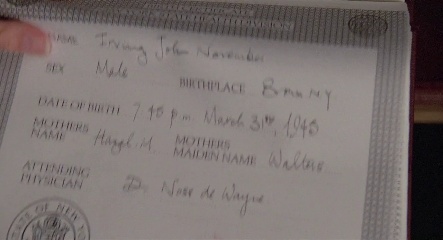 NAME Irving John November
SEX Male BIRTHPLACE Bronx NY
DATE OF BIRTH 7.45 p.m. March 31st, 1945
MOTHERS NAME Hazel M. MOTHERS MAIDEN NAME Walters
ATTENDING PHYSICIAN Dr. de Wayne
STATE OF NEW